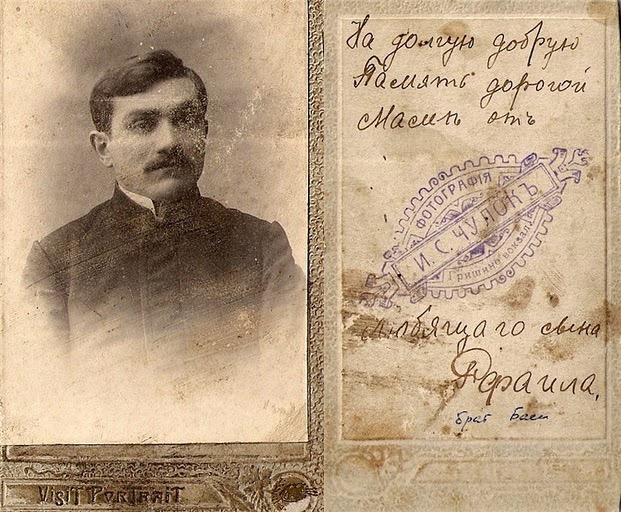 VISIT PORTRAIT
На долгую добрую
Память дорогой
от
ФОТОГРАФІЯ
И. С. ЧУЛОКЪ
Гришино вокзалъ
Любящаго сына
Рфаила.
брат Баси